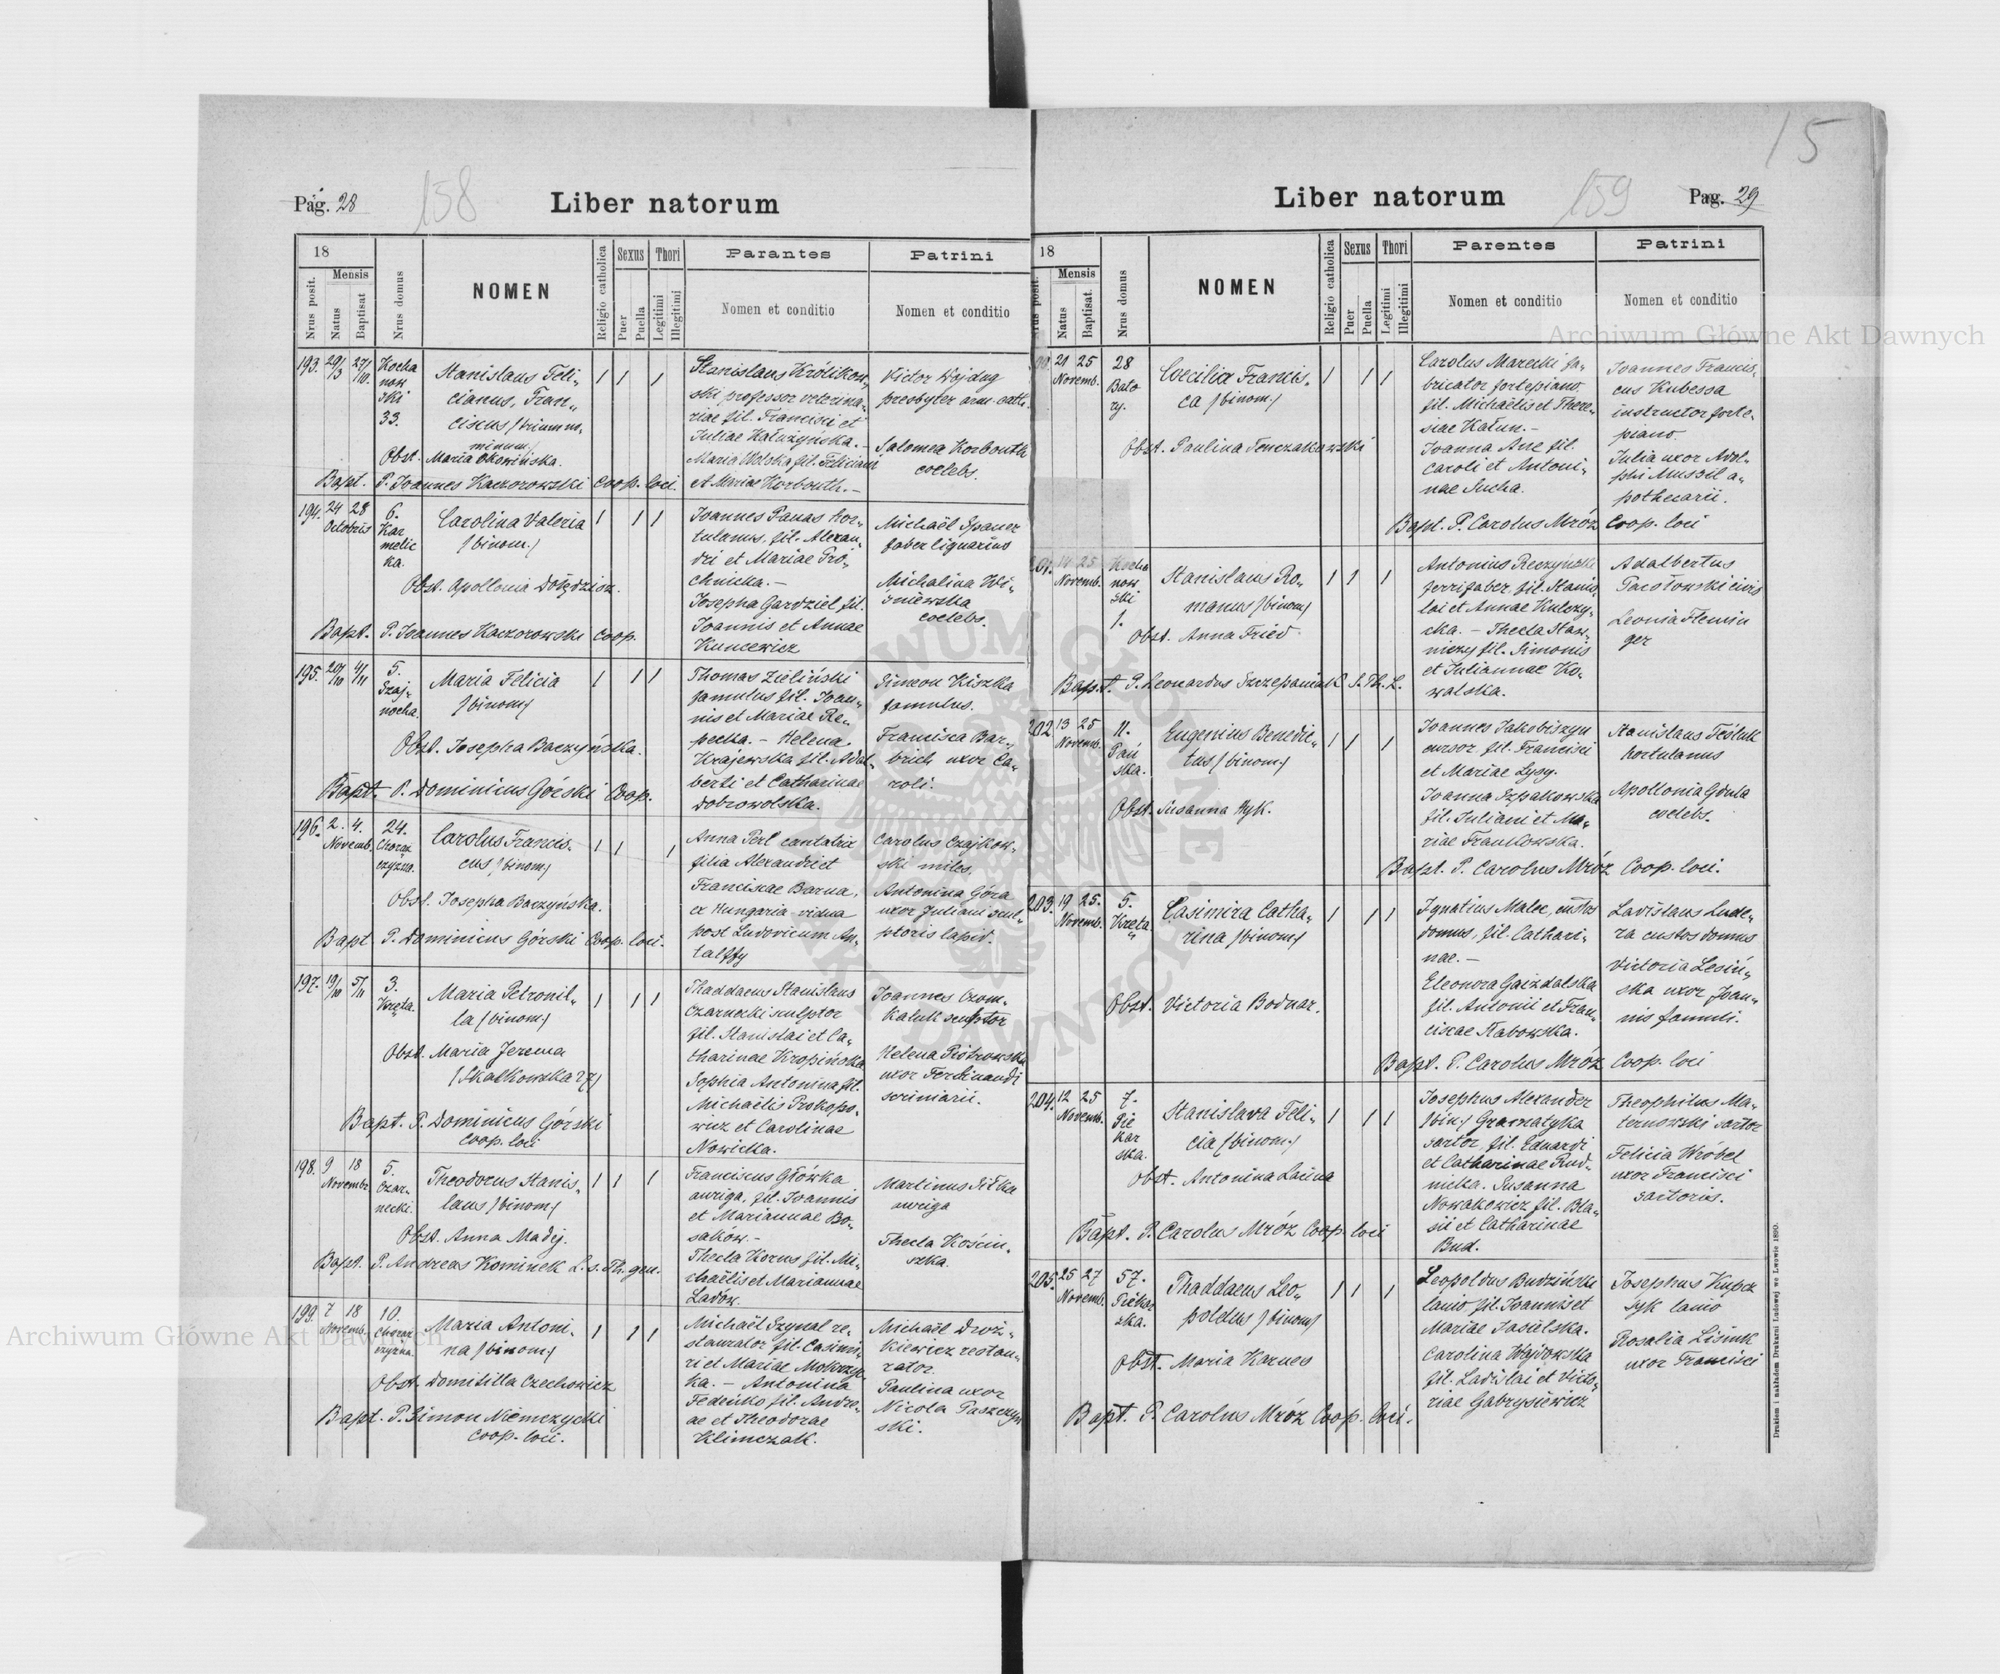 15
Pag. 28
158
Liber natorum
18
Mensis
Nrus posit.
Natus
Baptisat
Nrus domus
NOMEN
Religio catholica
Sexus
Puer
Puella
Thori
Legitimi
Illegitimi
Parantes
Nomen et conditio
Patrini
Nomen et conditio
193. 29/3 27/10.
Kocha
now
ski
33.
Stanislaus Féli-
cianus, Fran-
ciscus /trium no-
minum/
Obst. Maria Okowińska.
Bapt. P. Joannes Kaczorowski Coop. loci.
Stanislaus Królikow-
ski professor veterina-
riae fil. Francisci et
Juliae Kałużyńska. –
Maria Wolska fil. Feliciani
et Mariae Korbouth. –
Victor Wojdug
presbyter arm. cath.
Salomea Korbouth
coelebs.
194. 24 28
Octobris
6.
Kar
melic
ka.
Carolina Valeria
/binom./
Obst. Apollonia Dołędzioz.
Bapt. P. Joannes Kaczorowski Coop.
Joannes Panas hor-
tulanus, fil. Alexan-
dri et Mariae Pró-
chnicka. –
Josepha Gardziel fil.
Joannis et Annae
Kuncewicz
Michaël Spauer
faber lignarius
Michalina Wi-
śniewska
coelebs.
195. 20/10 4/11
5.
Szaj-
nocha.
Maria Felicia
/binom/
Obst. Josepha Baczyńska.
Bapt. P. Dominicus Górski Coop.
Thomas Zieliński
famulus fil. Joan-
nis et Mariae Re-
pecka. – Helena
Krajewska fil. Adal-
berti et Catharinae
Dobrowolska.
Simeon Kiszka
famulus.
Francisca Bar-
brich uxor Ca-
roli.
196. 2. 4.
Novemb.
24.
Chorąż
czyzna.
Carolus Francis-
cus /binom/
Obst. Josepha Baczyńska.
Bapt P. Dominicus Górski Coop. loci.
Anna Perl cantatrix
filia Alexandri et
Franciscae Barna,
ex Hungaria vidua
post Ludovicum An-
talffy
Carolus Czajkow-
ski miles.
Antonina Góra
uxor Juliani scul-
ptoris lapid.
197. 19/10 5/11
3.
Kręta.
Maria Petronil-
la /binom/
Obst. Maria Jerema
/Skałkowska 27/
Bapt. P. Dominicus Górski
Coop. loci
Thaddaeus Stanislaus
Czarnecki sculptor
fil. Stanislai et Ca-
tharinae Kropińska
Sophia Antonina fil.
Michaëlis Prokopo-
wicz et Carolinae
Nowicka.
Joannes Czom-
kaluk sculptor
Helena Piotrowska
uxor Ferdinandi
scriniarii.
198. 9 18
Novembr.
5.
Czar-
necki.
Theodorus Stanis-
laus /binom/
Obst. Anna Madej.
Bapt. P. Andreas Kominek L. s. Th. gen.
Franciscus Główka
auriga, fil. Joannis
et Mariannae Bo-
saków. –
Thecla Korus fil. Mi-
chaëlis et Mariannae
Ladów.
Martinus Piłka
auriga
Thecla Kościu-
szka.
199. 7 18
Novemb.
10.
Chorąż
czyzna.
Maria Antoni-
na /binom/
Obst. Domitilla Czechowicz
Bapt. P. Simon Niemczycki
Coop. loci.
Michaël Szynal re-
staurator fil. Casimi-
ri et Mariae Mokrzyc-
ka. – Antonina
Fedeńko fil. Andre-
ae et Theodorae
Klimczak.
Michaël Droż-
kiewicz restau-
rator.
Paulina uxor
Nicola Paszczyń
ski.
Liber natorum
159
Pag. 29
18
Mensis
Nrus posit.
Natus
Baptisat.
Nrus domus
NOMEN
Religio catholica
Sexus
Puer
Puella
Thori
Legitimi
Illegitimi
Parentes
Nomen et conditio
Patrini
Nomen et conditio
21 25
Novemb.
28
Bato
ry.
Coecilia Francis-
ca /binom/
Obst. Paulina Tenczakowska
Carolus Marecki fa-
bricator fortepiano,
fil. Michaëlis et There-
siae Kałun. –
Joanna Ane fil.
Caroli et Antoni-
nae Sucha.
Bapt. P. Carolus Mróz Coop. loci
Joannes Francis-
cus Kubessa
instructor forte-
piano.
Julia uxor Adol-
phi Mussil a-
pothecarii.
201. 14 25
Novemb.
Kocha
now
ski
1.
Stanislaus Ro-
manus /binom/
Obst. Anna Fried.
Bapt. P. Leonardus Szczepaniak S. Th. L.
Antonius Reczyński
ferrifaber fil. Stanis-
lai et Annae Kulczy-
cka. – Thecla Staw-
niczy fil. Simonis
et Juliannae Ko-
walska.
Adalbertus
Pacołowski civis
Leonia Flemin
ger
202. 13 25
Novemb.
11.
Pań
ska.
Eugenius Benedic-
tus /binom/
Obst. Susanna Hyk.
Joannes Jakobiszyn
cursor fil. Francisci
et Mariae Lysy.
Joanna Szpakowska
fil. Juliani et Ma-
riae Frankowska.
Bapt. P. Carolus Mróz Coop. loci.
Stanislaus Teśluk
hortulanus
Apollonia Góula
coelebs.
203. 19 25.
Novemb.
5.
Kręta
Casimira Catha-
rina /binom/
Obst. Victoria Bodnar.
Ignatius Malec, custos
domus, fil. Cathari-
nae. –
Eleonora Gaizdalska
fil. Antonii et Fran-
ciscae Rabowska.
Bapt. P. Carolus Mróz Coop. loci
Ladislaus Lude-
ra custos domus
Victoria Lesiń-
ska uxor Joan-
nis famuli.
204. 12 25
Novemb.
7.
Pie
kar
ska.
Stanislava Feli-
cia /binom/
Obst. Antonina Lacina
Bapt. P. Carolus Mróz Coop. loci
Josephus Alexander
/bin/ Gramatyka
sartor fil. Eduardi
et Catharinae Rud-
nicka. Susanna
Nowakowicz fil. Bla-
sii et Catharinae
Bud.
Theophilus Ma-
ternowski sartor
Felicia Wróbel
uxor Francisci
sartoris.
205. 25 27
Novemb.
57.
Piekar
ska.
Thaddaeus Leo-
poldus /binom/
Obst. Maria Karnes
Bapt. P. Carolus Mróz Coop. loci.
Leopoldus Budziński
lanio fil. Joannis et
Mariae Jasielska.
Carolina Wojdowska
fil. Ladislai et Victo-
riae Gabrysiewicz
Josephus Kupcz
syk lanio
Rosalia Lisiuk
uxor Francisci
Drukiem i nakładem Drukarni Ludowej we Lwowie 1890.
Archiwum Główne Akt Dawnych
Archiwum Główne Akt Dawnych